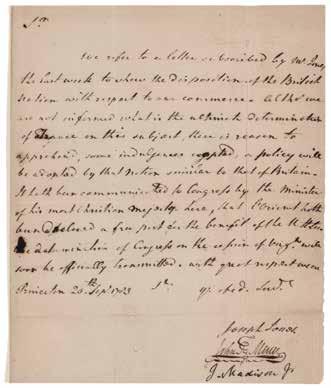 Sir
We refer to a letter subscribed by Mr Jones
the last week to shew the disposition of the British
nation with respect to our commerce. Altho' we
are not informed what is the ultimate determination
of France on this subject, there is reason to
apprehend, some indulgences excepted, a policy will
be adopted by that nation similar to that of Britain.
It hath been communicated to Congress by the Minister
of his most Christian majesty here, that L'Orient hath
been declared a free port for the benefit of the
determination of Congress on the cession of Virga will
soon be officially transmitted. with great respect we are
Princeton 20th Sepr 1783 Sr yr obed. Servts
Joseph Jones
John F. Mercer
J. Madison Jr